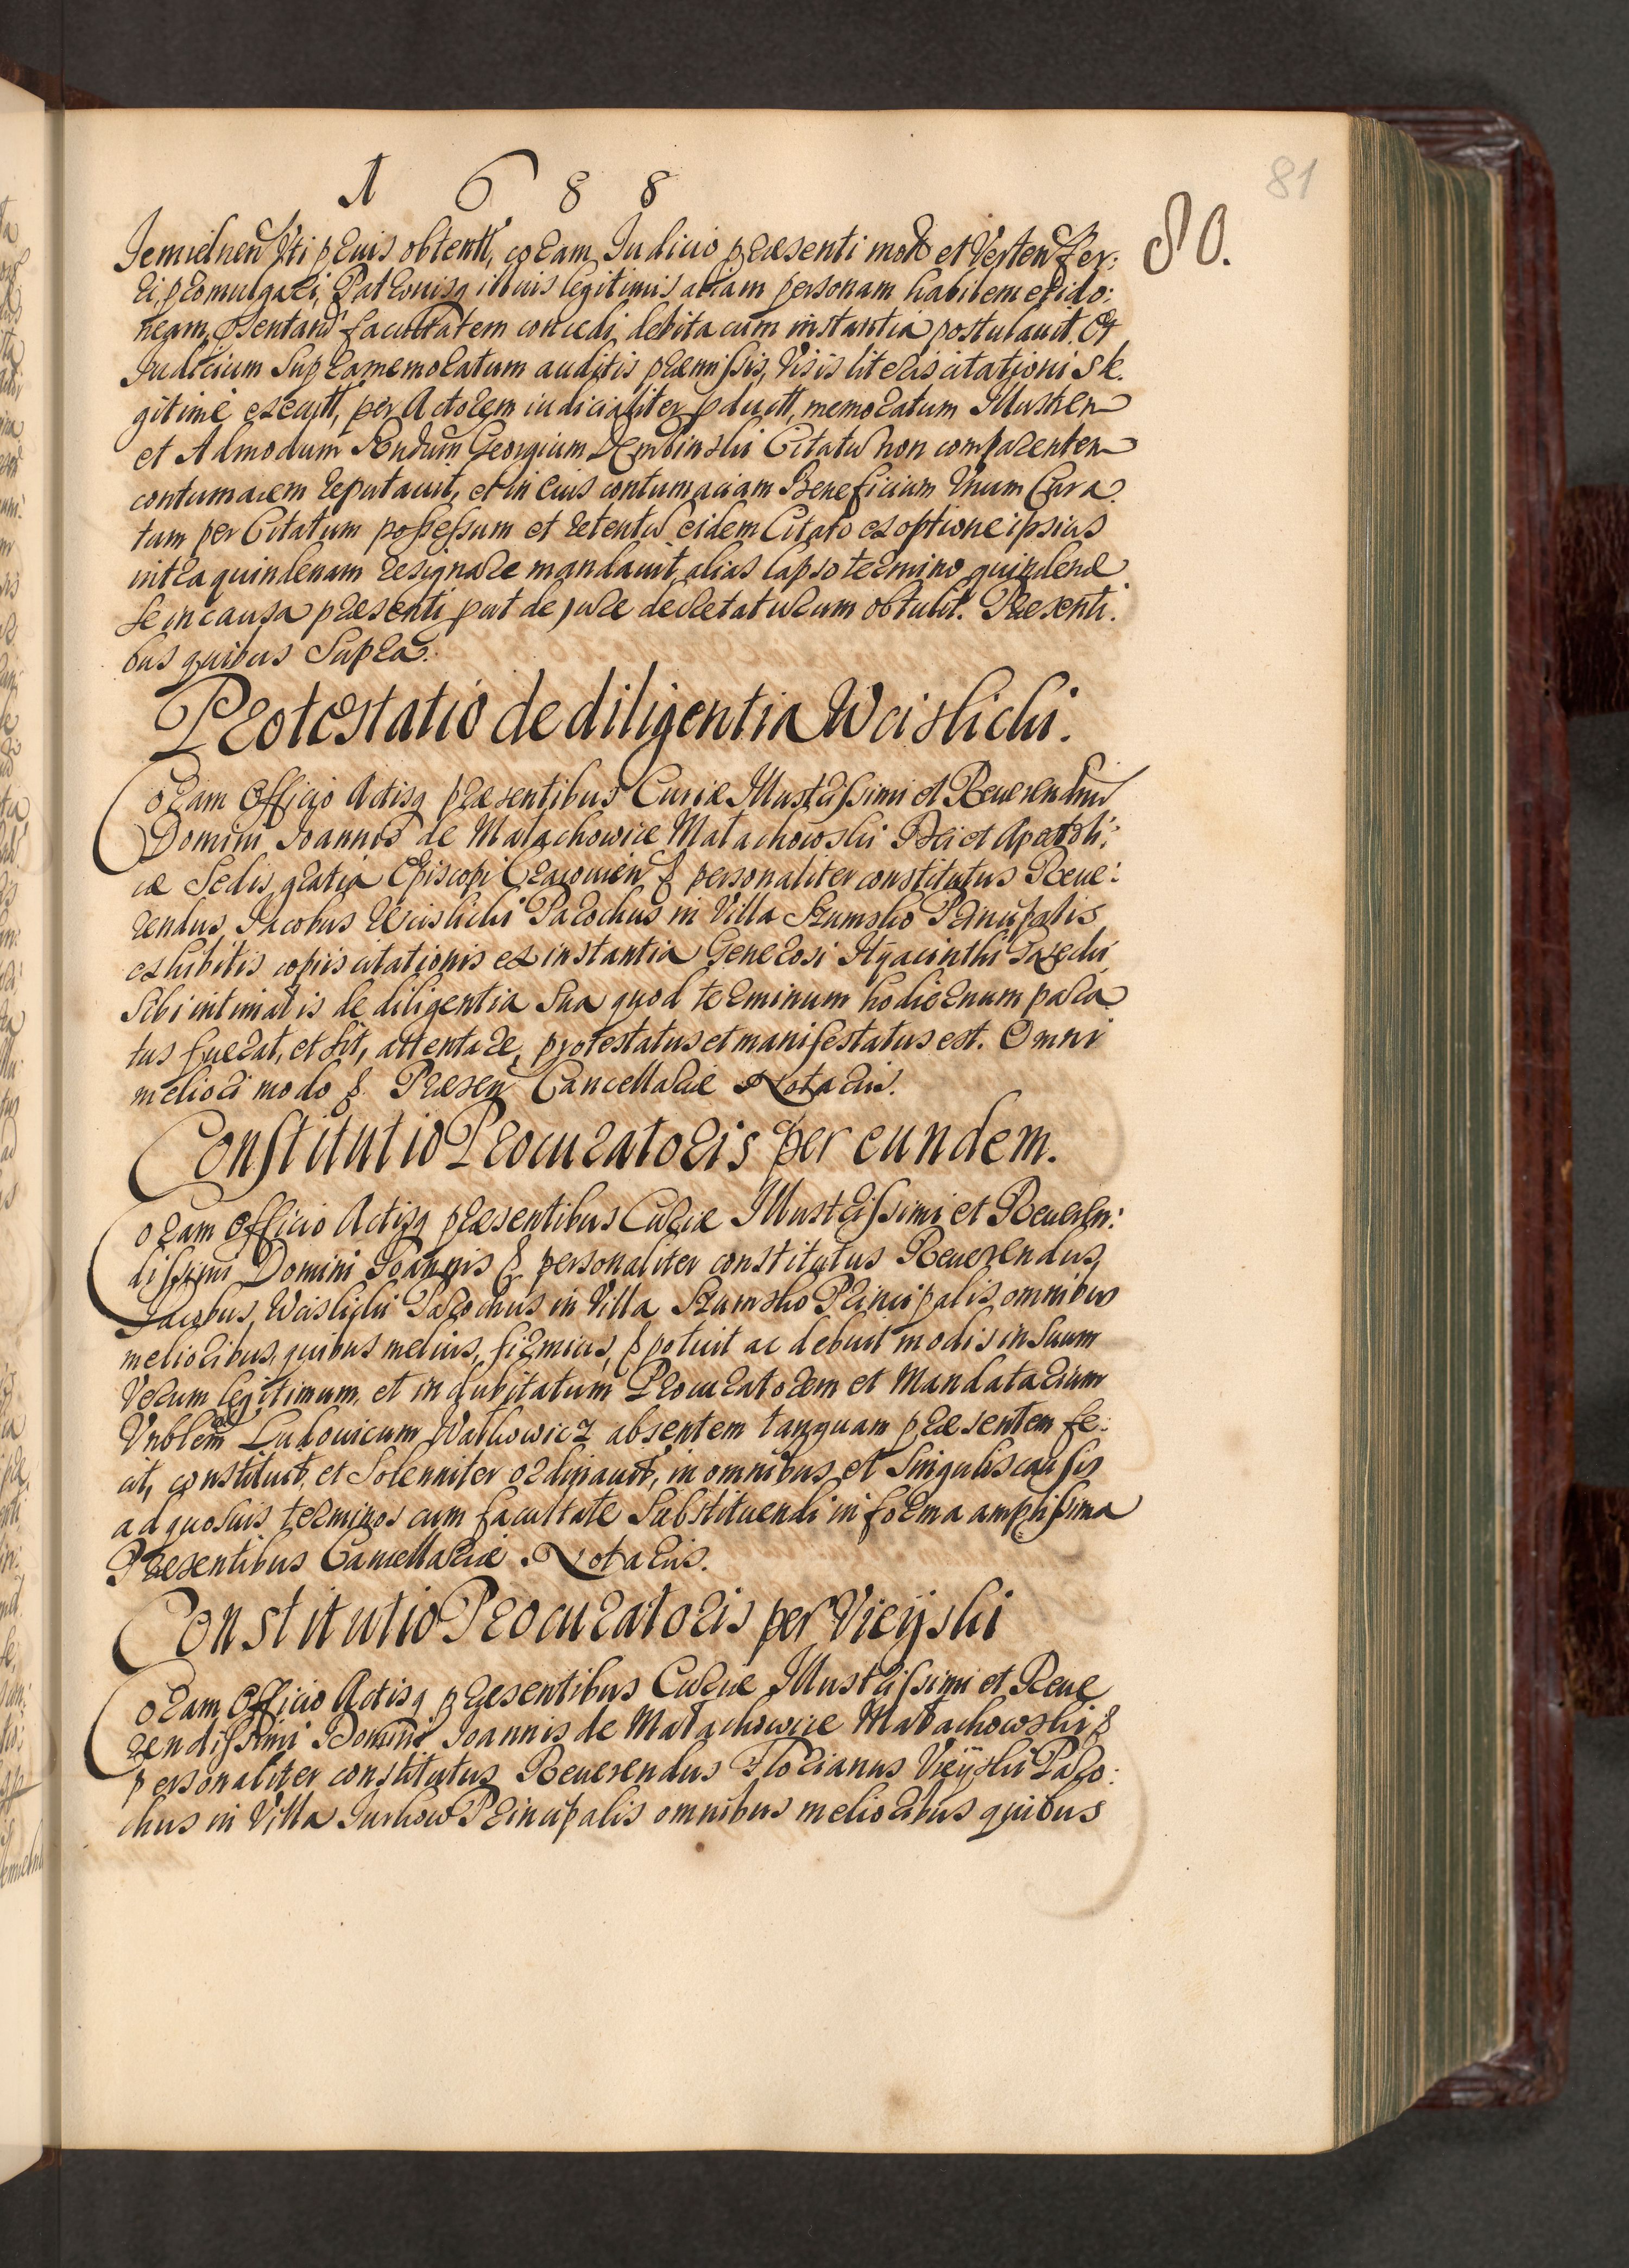 1688
81
80.
Jemielnen Uti prius obtentt, coram Judicio præsenti mott et Verten fer:
ri, promulgari, Patronisq illius legitimis aliam personam habilem et ido:
neam, psentand facultatem concedi debita cum instantia postulauit. Et
Judicium Supramemoratum auditis præmissis, Visis literis citationis le:
gitime executt, per Actorem iudicialiter pductt, memoratum Illustren
et Admodum Rndum Georgium Dembinski Citatu non comparenten
contumacem reputauit, et in eius contumaciam Beneficium Unum Cura:
tum per Citatum possessum et retentu eidem Citato ex optione ipsius
intra quindenam resignare mandauit, alias lapso termino quindenæ
se in causa præsenti put de jure decretaturum obtulit. Præsenti:
bus quibus Supra.
Protestatio de diligentia Wcislicki.
Coram Officio Actisq præsentibus Curiæ Illustrissimi et Reuerendmi
Domini Joannis de Małachowice Małachowski Dei et Apostoli:
cæ Sedis gratia Episcopi Cracouien & personaliter constitutus Reue:
rendus Jacobus Wcislicki Parochus in Villa Szumsko Principalis
exhibitis copiis citationis ex instantia Generosi Hyacinthi
Sibi intimatis de diligentia Sua quod terminum hodiernum para
tus fuerat, et sit, attentare, protestatus et manifestatus est. Omni
meliori modo &. Præsen Cancellariæ Notariis.
Constitutio Procuratoris per eundem.
Coram Officio Actisq præsentibus Curiæ Illustrissimi et Reueren:
dissimi Domini Joannis & personaliter constitutus Reuerendus,
Jacobus, Wcislicki Parochus in Villa Szumsko Principalis omnibus
melioribus, quibus melius, firmius, & potuit ac debuit modis in Suum
Verum legitimum, et indubitatum Procuratorem et Mandatarium
Vnblem Ludouicum Wałkowicz absentem tanquam præsentem fe:
cit, constituit, et Solenniter ordinauit, in omnibus et Singulis causis
ad quosuis terminos cum facultate Substituendi in forma amplissima
Præsentibus Cancellariæ Notariis.
Constitutio Procuratoris per Vieyski
Coram Officio Actisq præsentibus Curiæ Illustrissimi et Reue
rendissimi Domini Joannis de Małachowice Małachowski &
personaliter constitutus Reuerendus Florianus Vieyski Paro:
chus in Villa Jurkow Principalis omnibus melioribus quibus